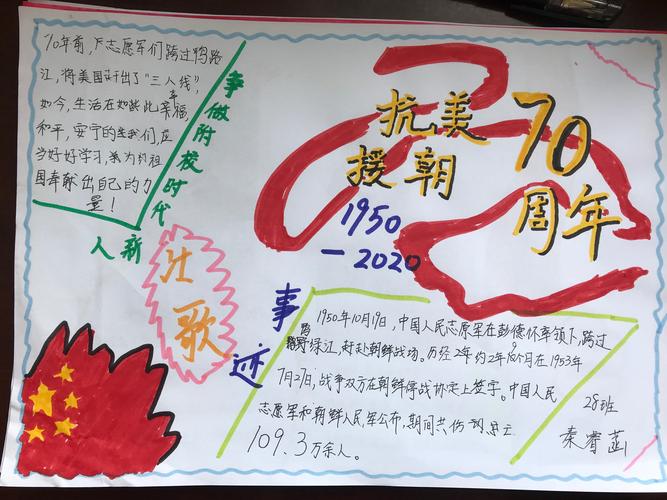 70年前，志愿军们跨过鸭路
江，将美国赶出了"三八线"，
如今，生活在如此幸福，
和平，安宁的我们，应
当好好学习，来为祖
国奉献出自己的力
量！
争做附校时代
新人
抗美
援朝
70
周年
1950
—2020
壮
歌
事
迹
1950年10月19日，中国人民志愿军在彭德怀率领下，跨过
绿江，赶赴朝鲜战场。历经2年约2年9个月在1953年
7月27日，战争双方在朝鲜停战协定上签字。中国人民
志愿军和朝鲜人民军公布，期间共伤
109.3万余人。
28班
秦